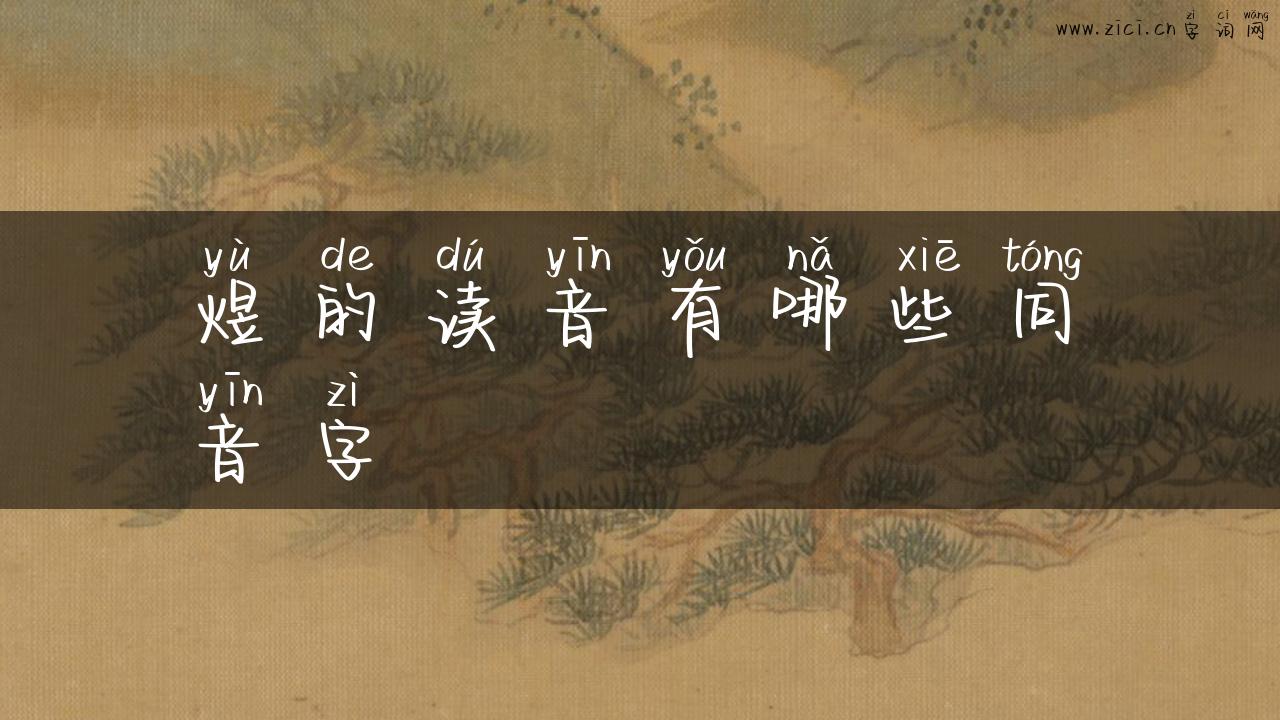 zì cí wǎng
www.zici.cn 字 词 网
yù de dú yīn yǒu nǎ xiē tóng
煜 的 读 音 有 哪 些 同
yīn zì
音 字